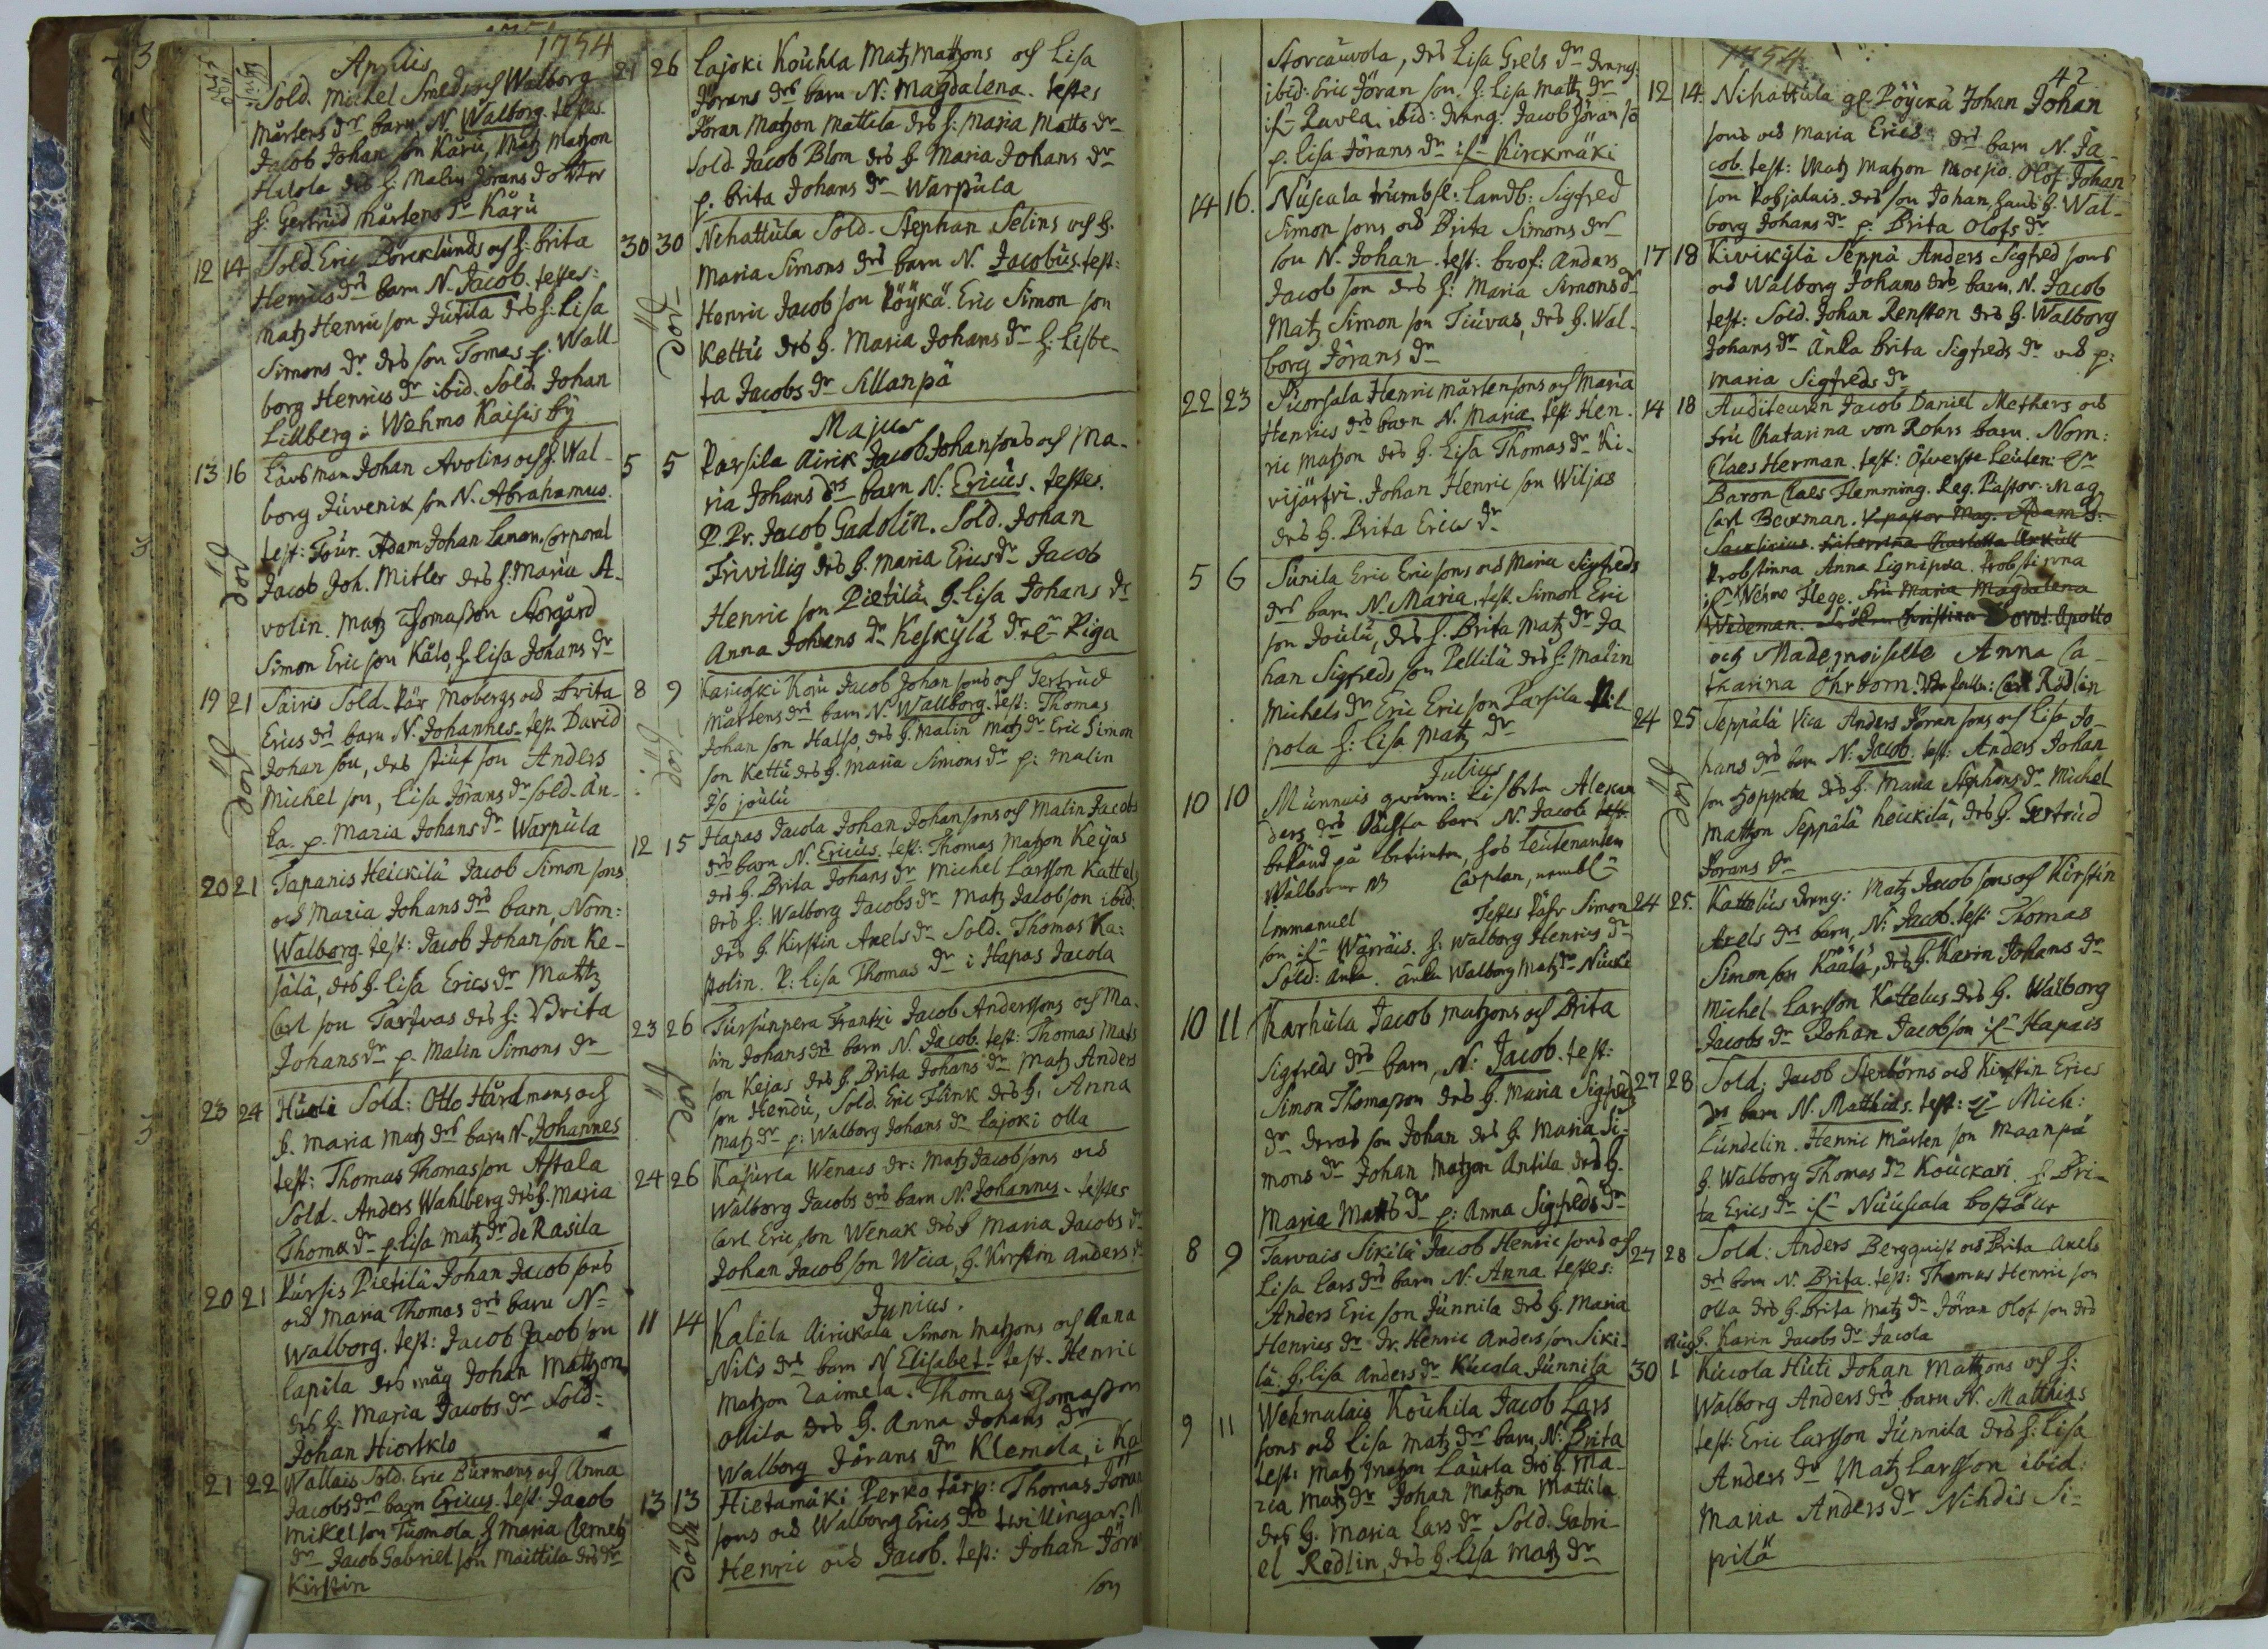 1754
Aprilis
Sold. Michel Smeds och Walborg
Mårtens drs barn N. Walborg. testes.
Jacob Johan son Käru, Matz Matzon
Hilola drs h: Malin Jörans dotter
h: Gertrud Mårtens dr Käru
12 14 Sold. Eric Börcklunds och h: Brita
Henrics drs barn N. Jacob. testes:
Matz Henric son Jutila drs h: Lisa
Simons dr. drs son Tomas p: Wall-
borg Henrics dr ibid. Sold. Johan
Lillberg i Wehmo Kaisis by
13 16 Länsman Johan Avolins och h. Wal-
borg Juvenix son N. Abrahamus.
test: Four. Adam Johan Laman. Corporal
Jacob Joh. Mitler drs h: Maria A-
volin. Matz Thomasson Storgård
Simon Eric son Kålo, h. Lisa Johans dr
19 21 Sairis Sold. Pär Mobergs och Brita
Erics drs barn N. Johannes. test. David
Johan son, drs stiuf son Anders
Michel son, Lisa Jörans dr Sold. än-
ka. p. Maria Johans dr Warpula
20 21 Tapanis Heickilä Jacob Simon sons
och Maria Johans drs barn, Nom:
Walborg. test: Jacob Johan son Ke-
sälä, drs h. Lisa Erics dr Mattz
Carl son Tarfvas drs h: Brita
Johans dr p. Malin Simons dr
23 24 Sold: Otto Hårdmans och
h. Maria Matz drs barn N. Johannes
test: Thomas Thomasson Astala
Sold. Anders Wahlberg drs h. Maria
Thomæ dr p. Lisa Matz dr de Rasila
20 21 Pursis Pietilä Johan Jacob sons
och Maria Thomas drs barn N.
Walborg. test: Jacob Jacob son
Lapila drs måg Johan Mattzon
drs h: Maria Jacobs dr Sold:
Johan Hiortklo
21 22 Wallais Sold. Eric Burmans och Anna
Jacobs drs barn Ericus. test: Jacob
Mikel son Tuomola h Maria Clemetz
dr Jacob Gabriel son Maittila drs dr
Kirstin
21 26 Lajoki Kouhla Matz Matzons och Lisa
Jörans drs barn N: Magdalena. testes
Jöran Matzon Mattila drs h: Maria Matts dr
Sold. Jacob Blom drs h. Maria Johans dr
p. Brita Johans dr Warpula
30 30 Nihattula Sold. Stephan Selins och h.
Maria Simons drs barn N. Jacobus. test:
Henric Jacob son Pöÿkä. Eric Simon son
Kettu drs h. Maria Johans dr h. Lisbe-
ta Jacobs dr Sillanpä
Majus
5 5 Parsila Airik Jacob Johan sons och Ma-
ria Johans drs barn N: Ericus. testes.
P. Pr. Jacob Gadolin. Sold. Johan
Frivillig drs h. Maria Erics dr Jacob
Henric son Pietilä h. Lisa Johans dr
Anna Johans dr Keskÿlä dr Riga
8 9 Koju Jacob Johan sons och Gertrud
Mårtens drs barn N. Wallborg. test: Thomas
Johan son Halso, drs h. Malin Matz dr Eric Simon
son Kettu drs h. Maria Simons dr p: Malin
Iso joulu
12 15 Hapas Jacola Johan Johan sons och Malin Jacobs
drs barn N. Ericus. test: Thomas Matzon Keijas
drs h. Brita Johans dr Michel Larsson Kattel
drs h: Walborg Jacobs dr Matz Jacobson ibid:
drs h. Kirstin Axels dr Sold. Thomas Ka:
polin. P: Lisa Thomas dr i Hapas Jacola
23 26 Tursunpera Frantzi Jacob Anderssons och Ma-
lin Johans drs barn N. Jacob. test: Thomas Mats
son Kejas drs h. Brita Johans dr Matz Anders
son Hendu, Sold. Eric Flink drs h. Anna
Matz dr p: Walborg Johans dr Lajoki Olla
24 26 Kasurla Wenais dr: Matz Jacobsons och
Walborg Jacobs drs barn N. Johannes. testes
Carl Eric son Wenak drs h Maria Jacobs dr
Johan Jacob son Wiia, h. Kirstin Anders dr
Junius.
11 14 Kalela Airickala Simon Matzons och Anna
Nils drs barn N Elisabet. test. Henric
Matzon Laimela. Thomas Thomasson
Ollila drs h. Anna Johans dr
Walborg Jörans dr Klemola, i Ka
13 13 Hietamäki Perko tårp: Thomas Jöran
sons och Walborg Erics drs twillingar. N
Henric och Jacob. test: Johan Jöran
son
Storcauvola, drs Lisa Grels dr dreng.
ibid: Eric Jöran son. h. Lisa Mattz dr
if Lavla. ibid: dreng. Jacob Jöran so
p. Lisa Jörans dr if Kirckmäki
14 16. Nuscala trumbsl: Landb: Sigfred
Simon sons och Brita Simons drs
son N. Johan. test: brof. Anders
Jacob son drs h: Maria Simons dr
Matz Simon son Tiuvas, drs h. Wal-
borg Jörans dr
22 23 Suorsala Henric Mårtensons och Maria
Henrics drs barn N. Maria. test: Hen-
ric Matzon drs h. Lisa Thomas dr Ki-
vijärfvi. Johan Henric son Wiljas
drs h. Brita Erics dr
5 6 Sunila Eric Eric sons och Maria Sigfreds
drs barn N. Maria, test. Simon Eric
son Joulu, drs h. Brita Matz dr Jo
han Sigfreds son Pellilä drs h: Malin
Michels dr Eric Eric son Parsila Pil-
pola h: Lisa Matz dr
Julius
10 10 Munnuis qwinn: Lisbeta Alexan
ders drs oächta barn N. Jacob test.
bekänd på Leutenanten
Carplan, nembl.
Immanuel Testes Simon
son if Wärräis. h: Walborg Henrics dr
Sold: änka. änka Walborg Matz dr
10 11 Karhula Jacob Matzons och Brita
Sigfreds drs barn, N: Jacob. test:
Simon Thomasson drs h. Maria Sigfreds
dr deras son Johan drs h. Maria Si-
mons dr Johan Matzon Antila drs h.
Maria Matts dr p: Anna Sigfreds dr
8 9 Tarvais Sikilä Jacob Henric sons och
Lisa Lars drs barn N: Anna. testes:
Anders Eric son Junnila drs h. Maria
Henrics dr Dr. Henric Anders son Siki-
lä. h. Lisa Anders dr Kucola Junnila
9 11 Wehmalais Kouhila Jacob Lars
sons och Lisa Matz drs barn, N: Brita
test: Matz Matzon Laurla drs h. Ma-
ria Matz dr Johan Matzon Mattila
drs h. Maria Lars dr Sold. Gabri-
el Redlin, drs h. Lisa Matz dr
1754.
42
12 14. Nihattula gl. Pöÿckä Johan Johan
sons och Maria Erics drs barn N. Ja-
cob. test: Matz Matzon Moisio. Olof Johan
son Robjalais. drs son Johan, hans h. Wal-
borg Johans dr p. Brita Olofs dr
17 18 Kivikÿlä Seppä Anders Sigfred sons
och Walborg Johans drs barn. N. Jacob
test: Sold. Johan Rensten drs h. Walborg
Johans dr Änka Brita Sigfreds dr och p:
Maria Sigfreds dr
14 18 Auditeuren Jacob Daniel Methers och
fru Chatarina von Rohrs barn. Nom:
Claes Herman. test: Öfverste Leuten:
Baron Claes Flemming. Reg. Pastor. Mag.
Carl Beckman. V. pastor Mag. Adam
Probstinna Anna Lignipæa. Probstinna
if Wehmo Flege. Fru Maria Magdalena
Wideman.
och Mademoiselle Anna Ca-
tharina Öhrbom. Carl Rödlin
24 25 Seppälä Vica Anders Jöran sons och Lisa Jo-
hans drs barn N: Jacob. test: Anders Johan
son Hoppeta drs h. Maria Stephans dr Michel
Mattzon Seppälä heickilä, drs h. Gertrud
Jörans dr
24 25. Kattelus dreng: Matz Jacob sons och Kirstin
Axels drs barn, N: Jacob. test: Thomas
Simon son Käälä, drs h. Karin Johans dr
Michel Larsson Kattelus drs h. Walborg
Jacobs dr Johan Jacobson if Hapais
27 28 Sold: Jacob Sterbörns och Kirstin Erics
drs barn N. Matthias. test: Mich:
Lundelin. Henric Mårten son Maanpä
h. Walborg Thomas dr Kouckari. p. Bri-
ta Erics dr if Nuuscala
27 28 Sold: Anders Bergquist och Brita Axels
drs barn N. Brita. test: Thomas Henric son
Olla drs h. Brita Matz dr Jöran Olof son drs
h. Karin Jacobs dr Jacola
Aug
30 1 Kucola Huti Johan Mattzons och h:
Walborg Anders drs barn N. Matthias
test: Eric Larsson Junnila drs h: Lisa
Anders dr Matz Larsson ibid:
Maria Anders dr Nihdis Si-
pilä